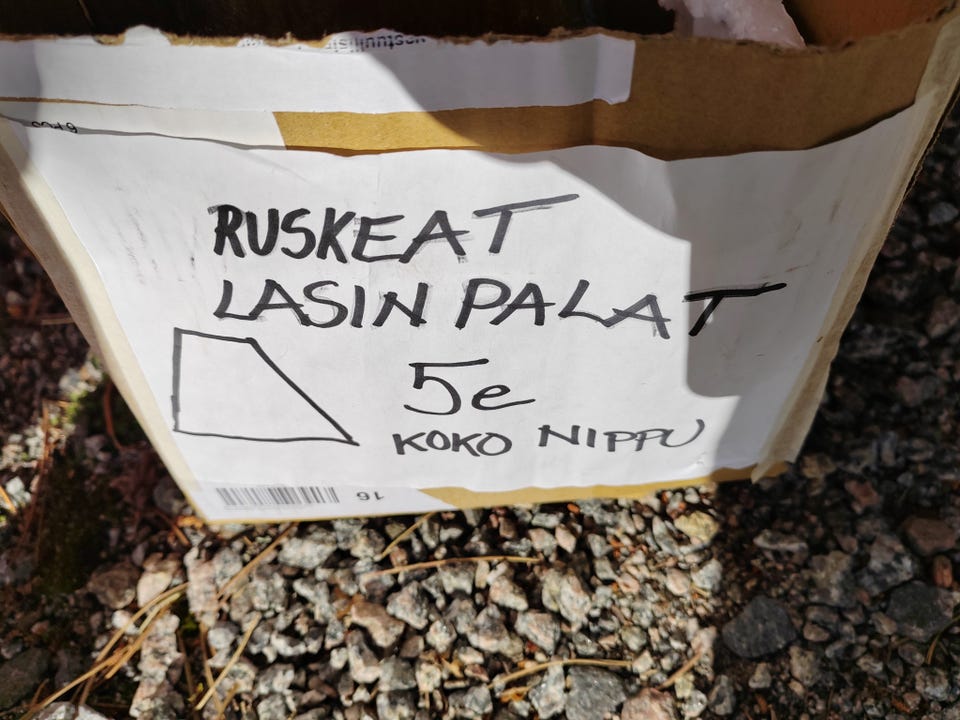 RUSKEAT
LASIN PALAT
5e
KOKO NIPPU
16